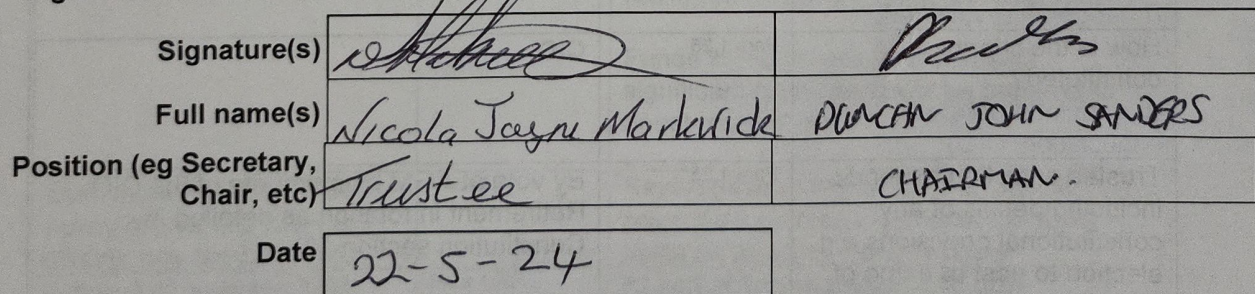 Signature(s)
Full name(s) Nicola Jayne Markwick DUNCAN JOHN SANDERS
Position (eg Secretary,
Chair, etc) Trustee CHAIRMAN.
Date 22-5-24